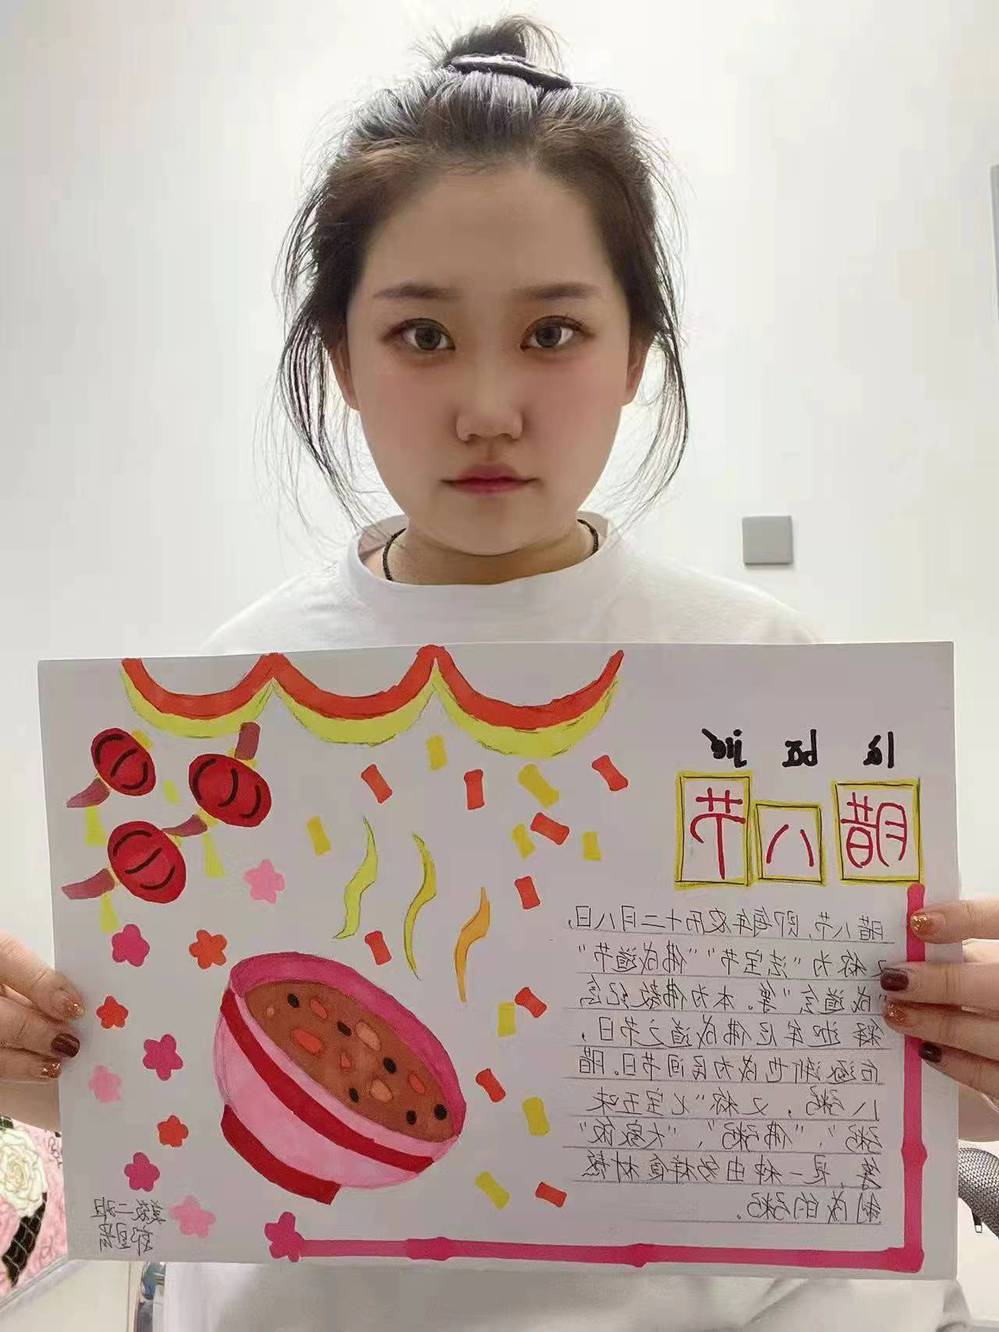 là bā jié
腊八节
腊八节,即每年农历十二月八日,
又称为"法宝节""佛成道节"
"成道会"等。本为佛教纪念
释迦牟尼佛成道之节日,
后逐渐也成为民间节日。腊
八粥,又称"七宝五味
粥","佛粥","大家饭"
等,是一种由多样食材熬
制成的粥。
二班